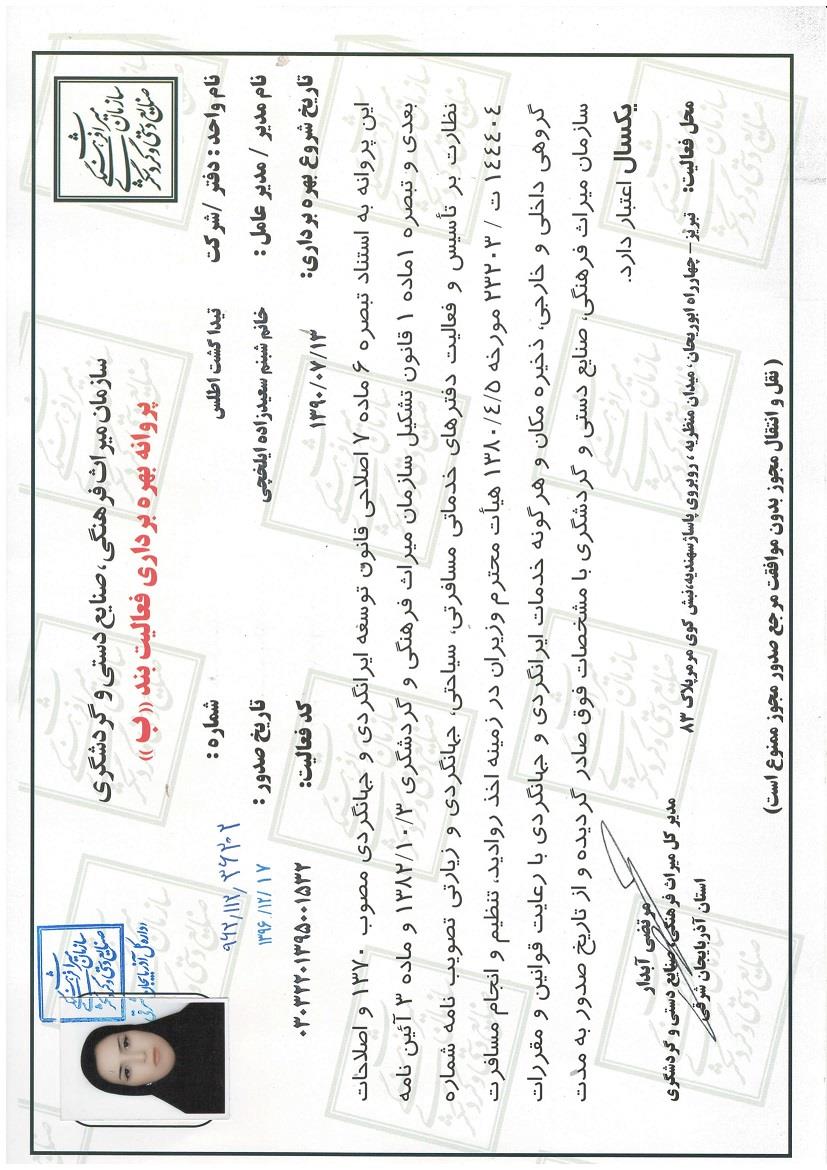 سازمان میراث فرهنگی
صنایع دستی و گردشگری
سازمان میراث فرهنگی، صنایع دستی و گردشگری
پروانه بهره برداری فعالیت بند «ب»
اداره کل آذربایجان شرقی
نام واحد : دفتر /شرکت تیدا گشت اطلس شماره :
نام مدیر / مدیر عامل : خانم شبنم سعیدزاده ایلخچی تاریخ صدور : ۱۳۹۶/۱۲/۱۷
تاریخ شروع بهره برداری: ۱۳۹۰/۰۷/۱۳ کد فعالیت: ۰۳۰۳۲۲۰۱۳۹۵۰۰۱۵۳۲
این پروانه به استناد تبصره ۶ ماده ۷ اصلاحی قانون توسعه ایرانگردی و جهانگردی مصوب ۱۳۷۰ و اصلاحات
بعدی و تبصره ۱ماده ۱ قانون تشکیل سازمان میراث فرهنگی و گردشگری ۱۳۸۲/۱۰/۳ و ماده ۳ آئین نامه
نظارت بر تأسیس و فعالیت دفترهای خدماتی مسافرتی، سیاحتی، جهانگردی و زیارتی تصویب نامه شماره
۱۴۴۴۰۴ ت / ۲۳۲۰۳ مورخه ۱۳۸۰/۴/۵ هیأت محترم وزیران در زمینه اخذ روادید، تنظیم و انجام مسافرت
گروهی داخلی و خارجی، ذخیره مکان و هر گونه خدمات ایرانگردی و جهانگردی با رعایت قوانین و مقررات
سازمان میراث فرهنگی، صنایع دستی و گردشگری با مشخصات فوق صادر گردیده و از تاریخ صدور به مدت
یکسال اعتبار دارد.
محل فعالیت: تبریز – چهارراه ابوریحان، میدان منظریه ، روبروی پاساژسهندیه،نبش کوی مرمرپلاک ۸۳
مرتضی آبدار
مدیر کل میراث فرهنگی، صنایع دستی و گردشگری
استان آذربایجان شرقی
( نقل و انتقال مجوز بدون موافقت مرجع صدور مجوز ممنوع است)